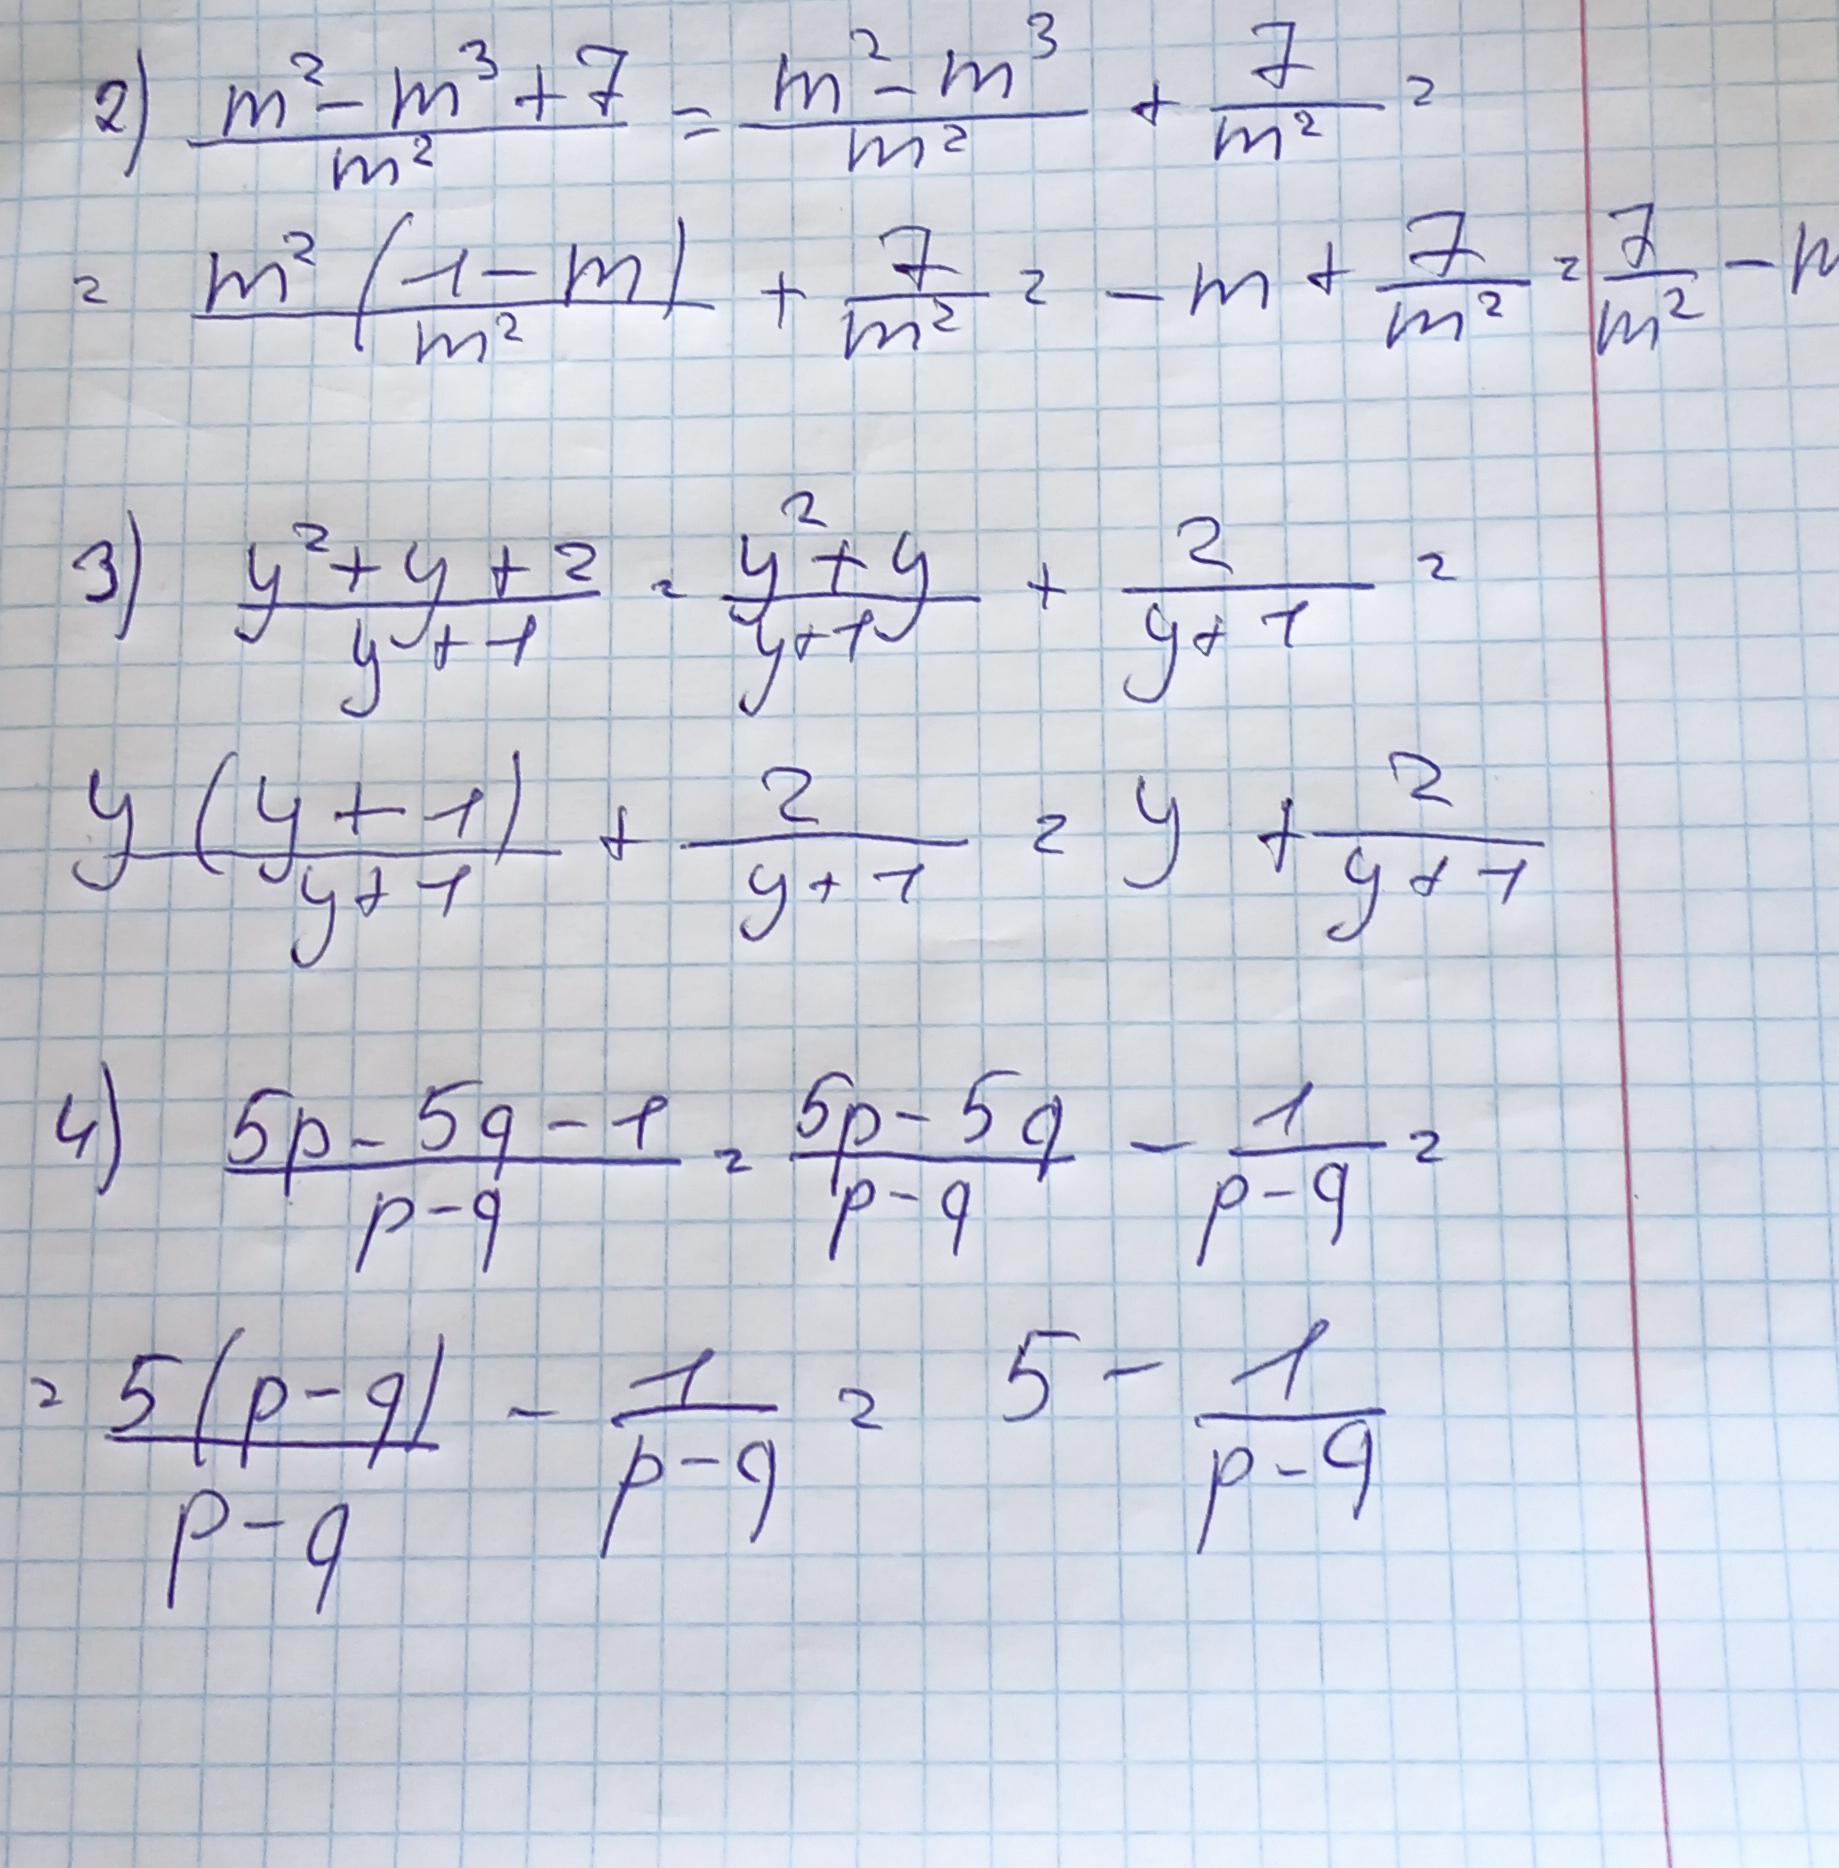 2) (m² - m³ + 7)/m² = (m² - m³)/m² + 7/m² =
= m²(1 - m)/m² + 7/m² = - m + 7/m² = 7/m² - m
3) (y² + y + 2)/(y + 1) = (y² + y)/(y + 1) + 2/(y + 1) =
y(y + 1)/(y + 1) + 2/(y + 1) = y + 2/(y + 1)
4) (5p - 5q - 1)/(p - q) = (5p - 5q)/(p - q) - 1/(p - q) =
= 5(p - q)/(p - q) - 1/(p - q) = 5 - 1/(p - q)